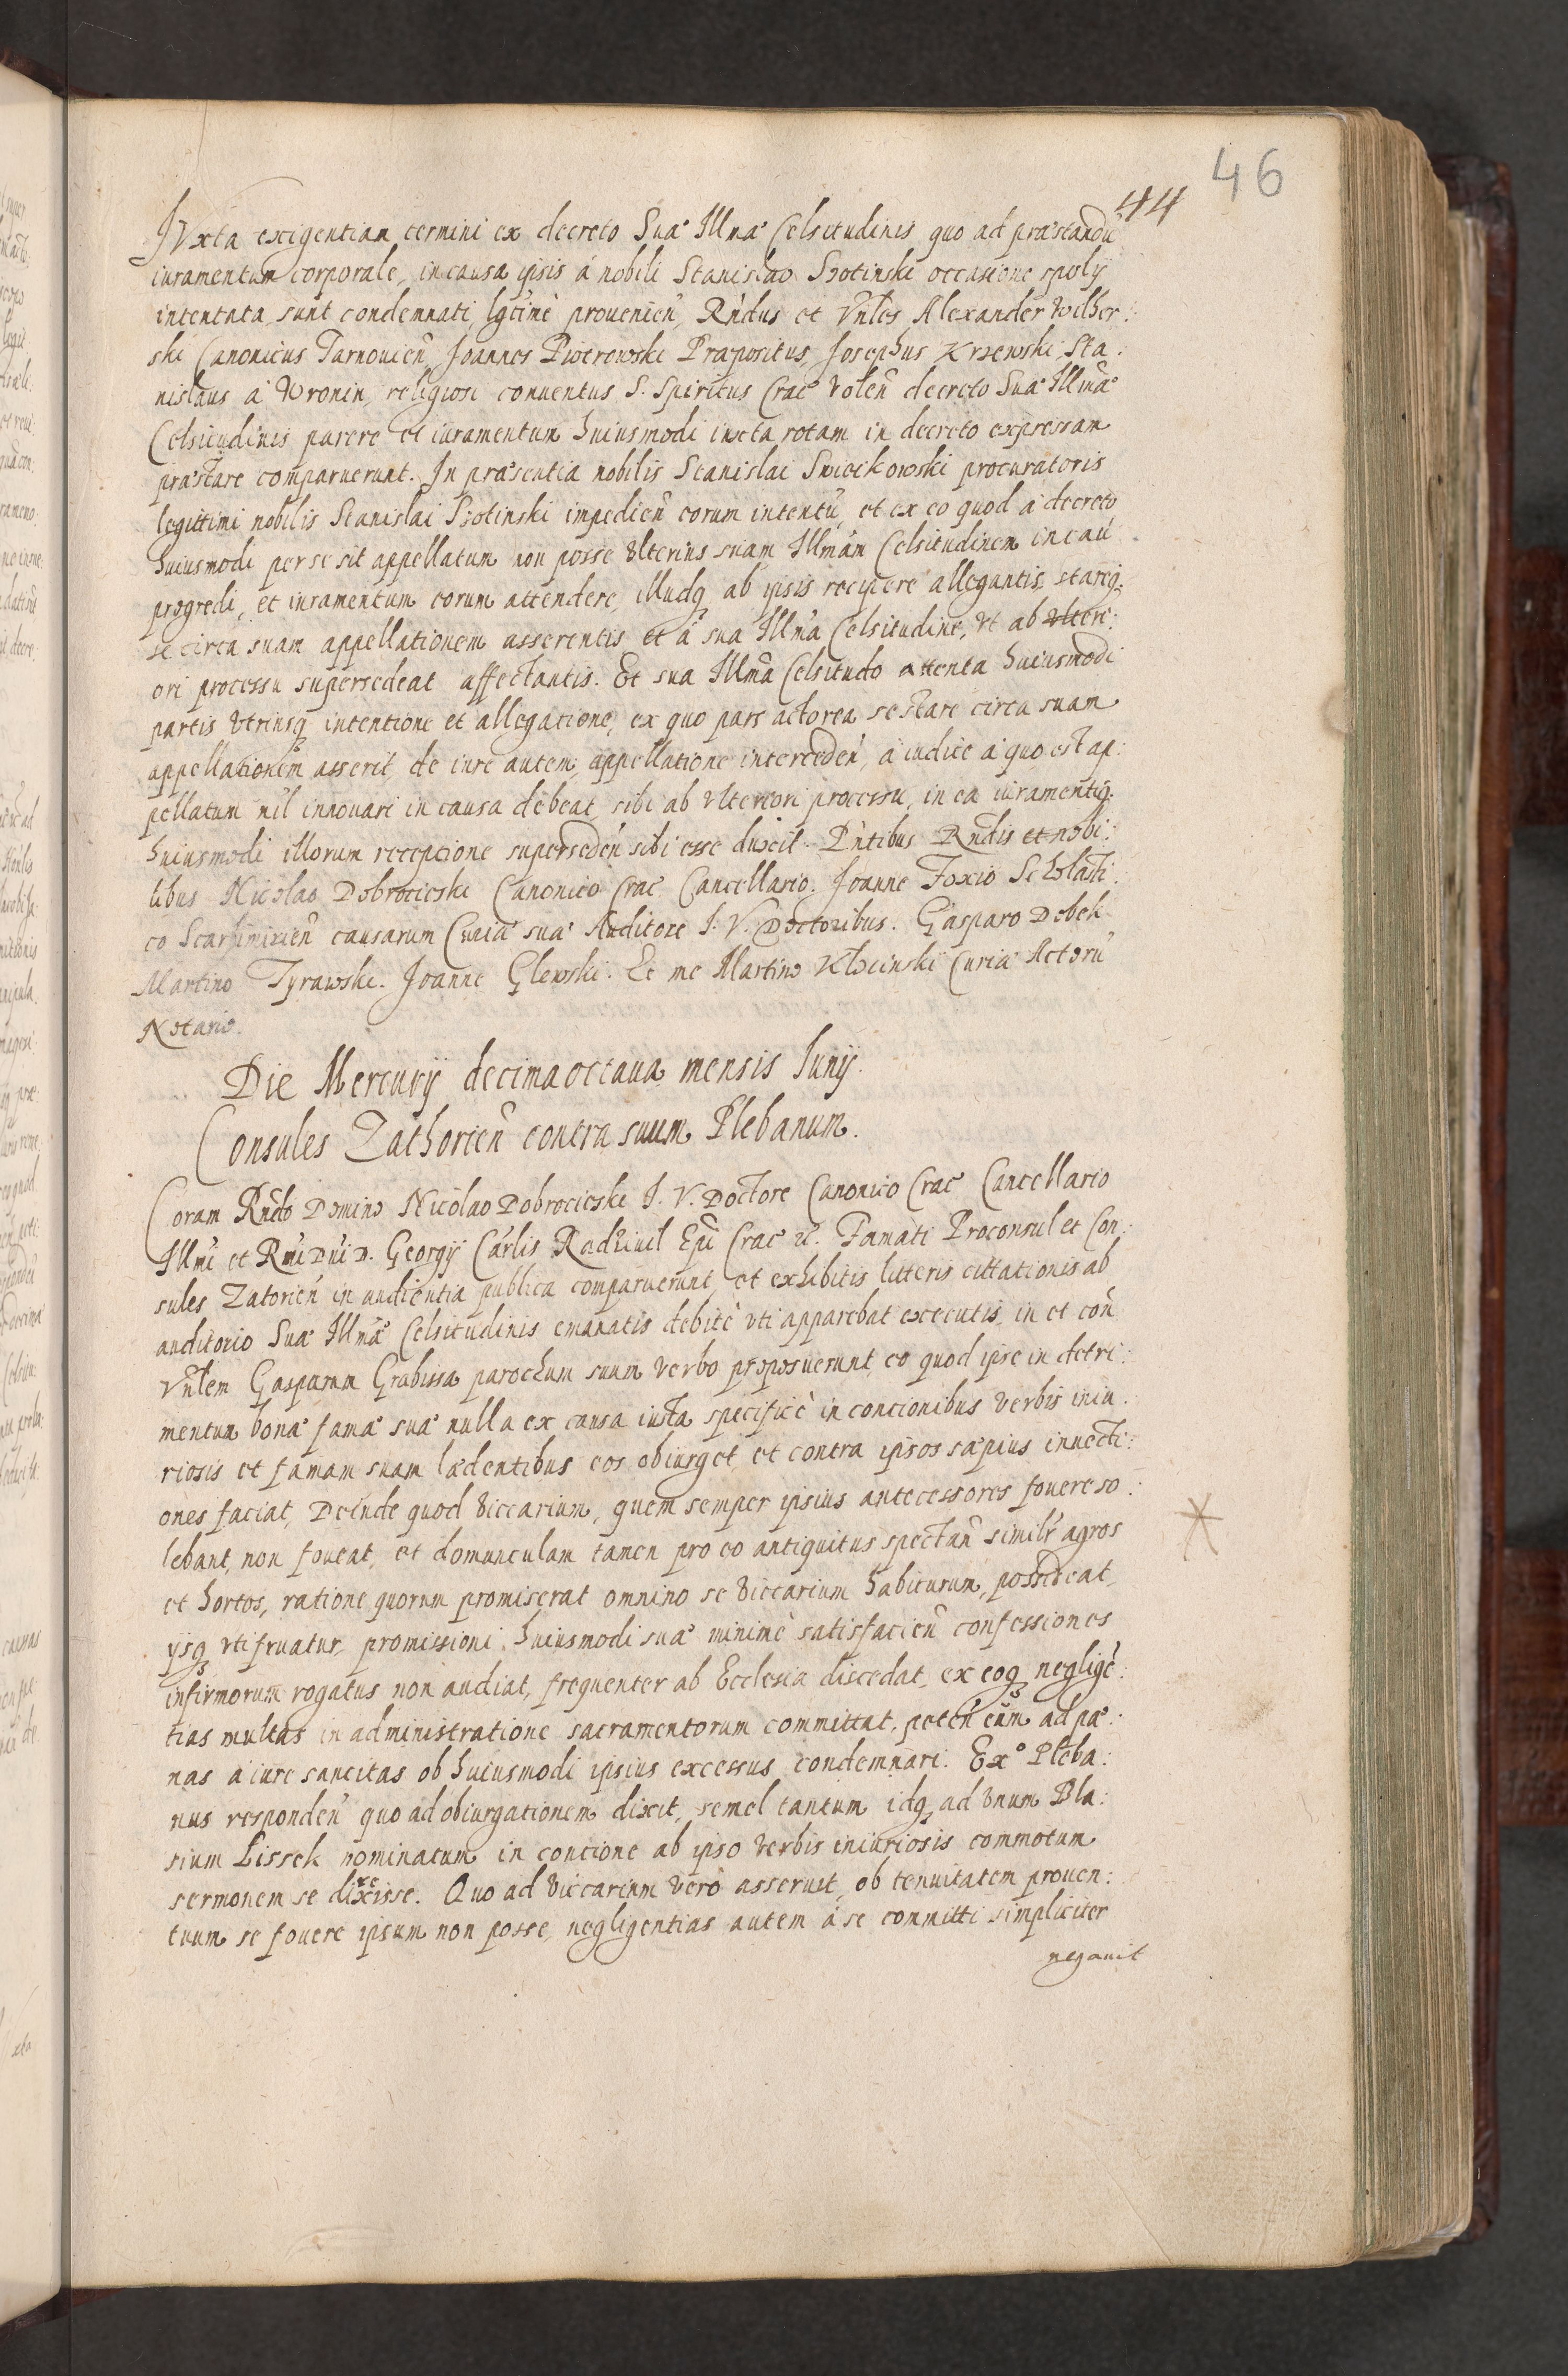 46
44
Iuxta exigentiam termini ex decreto Suæ Illmæ Celsitudinis quo ad præstandũ
iuramentum corporale, in causa ipsis á nobili Stanislao Szotinski occasione spolij
intentata, sunt condemnati, lgtimè proueniẽn, Rńdus et Vńles Alexander Wilher:
ski Canonicus Tarnouień, Joannes Piotrowski Præpositus, Josephus Krzewski, Sta:
nislaus á Wronin, religiosi conuentus S. Spiritus Crac̃ Volẽn decreto Suæ Illmæ
Celsitudinis parere et iuramentum huiusmodi iuxta rotam in decreto expressam
præstare comparuerunt. In præsentia nobilis Stanislai Swiecikowski procuratoris
legittimi nobilis Stanislai Szotinski impedień eorum intentũ, et ex eo quod á decreto
huiusmodi per se sit appellatum non posse Vlterius suam Illmãm Celsitudinem in caũ
progredi, et iuramentum eorum attendere, illudq; ab ipsis recipere allegantis, stareq;
se circa suam appellationem asserentis et á sua Illmã Celsitudine, vt ab vlteri:
ori processu supersedeat affectantis. Et sua Illmã Celsitudo attenta huiusmodi
partis Vtriusq; intentione et allegatione, ex quo pars actorea se stare circa suam
appellationem asserit, de iure autem, appellatione intercedeń, á iudice á quo est ap:
pellatum nil innouari in causa debeat, sibi ab vlteriori processu, in ea iuramentiq;
huiusmodi illorum receptione supersedeń sibi esse duxit. Pńtibus Rńdis et nobi:
libus Nicolao Dobrocieski Canonico Crac̃ Cancellario. Joanne Foxio Scholasti:
co Scarbimirień causarum Curiæ suæ Auditore I. V. Doctoribus. Gasparo Debek
Martino Tyrawski. Joanne Glewski. Et me Martino Kłocinski Curiæ Actorũ
Notario.
Die Mercurij decima octaua mensis Iunij.
Consules Zathorień contra suum Plebanum.
Coram Rńdo Domino Nicolao Dobrocieski I. V. Doctore Canonico Crac̃ Cancellario
Illmi et Rmi Dńi D. Georgij Cárlis Radziuil Epi Crac̃ &c. Famati Proconsul et Con:
sules Zatorień in audientia publica comparuerunt, et exhibitis litteris cittationis ab
auditorio Suæ Illmæ Celsitudinis emanatis debitè vti apparebat executis, in et coñ
Vńlem Gasparum Grabissa parochum suum verbo proposuerunt, eo quod ipse in detri:
mentum bonæ famæ suæ nulla ex causa iusta specificè in concionibus verbis iniu:
riosis et famam suam lædentibus eos obiurget, et contra ipsos sæpius inuecti:
ones faciat, Deinde quod Viccarium, quem semper ipsius antecessores fouere so:
lebant, non foueat, et domunculam tamen pro eo antiquitus spectań similr agros
et hortos, ratione quorum promiserat omnino se Viccarium habiturum, possideat,
ijsq; vti fruatur, promissioni huiusmodi suæ minimè satisfacień confessiones
infirmorum rogatus non audiat, frequenter ab Ecclesia discedat, ex eoq; negligẽ:
tias multas in administratione sacramentorum committat, peteń eum ad pæ:
nas á iure sancitas ob huiusmodi ipsius excessus condemnari. Ex° Pleba:
nus respondeń quo ad obiurgationem dixit, semel tantum idq; ad Vnum Bla:
sium Lissek nominatum in concione ab ipso verbis iniuriosis commotum
sermonem se dixisse. Quo ad Viccarium verò asseruit, ob tenuitatem prouen:
tuum se fouere ipsum non posse, negligentias autem á se committi simpliciter
negauit